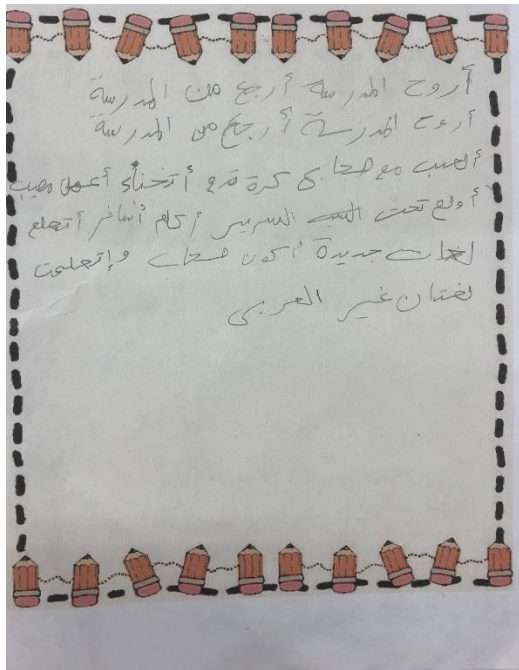 أروح المدرسة أرجع من المدرسة
أروح المدرسة أرجع من المدرسة
ألعب مع صحابي كرة قدم أتخناء أعمل مصيب
أولع تحت السرير أكلم أسافر أتعلم
لغات جديدة أكون صحاب وإتعلمت
لغتان غير العربى